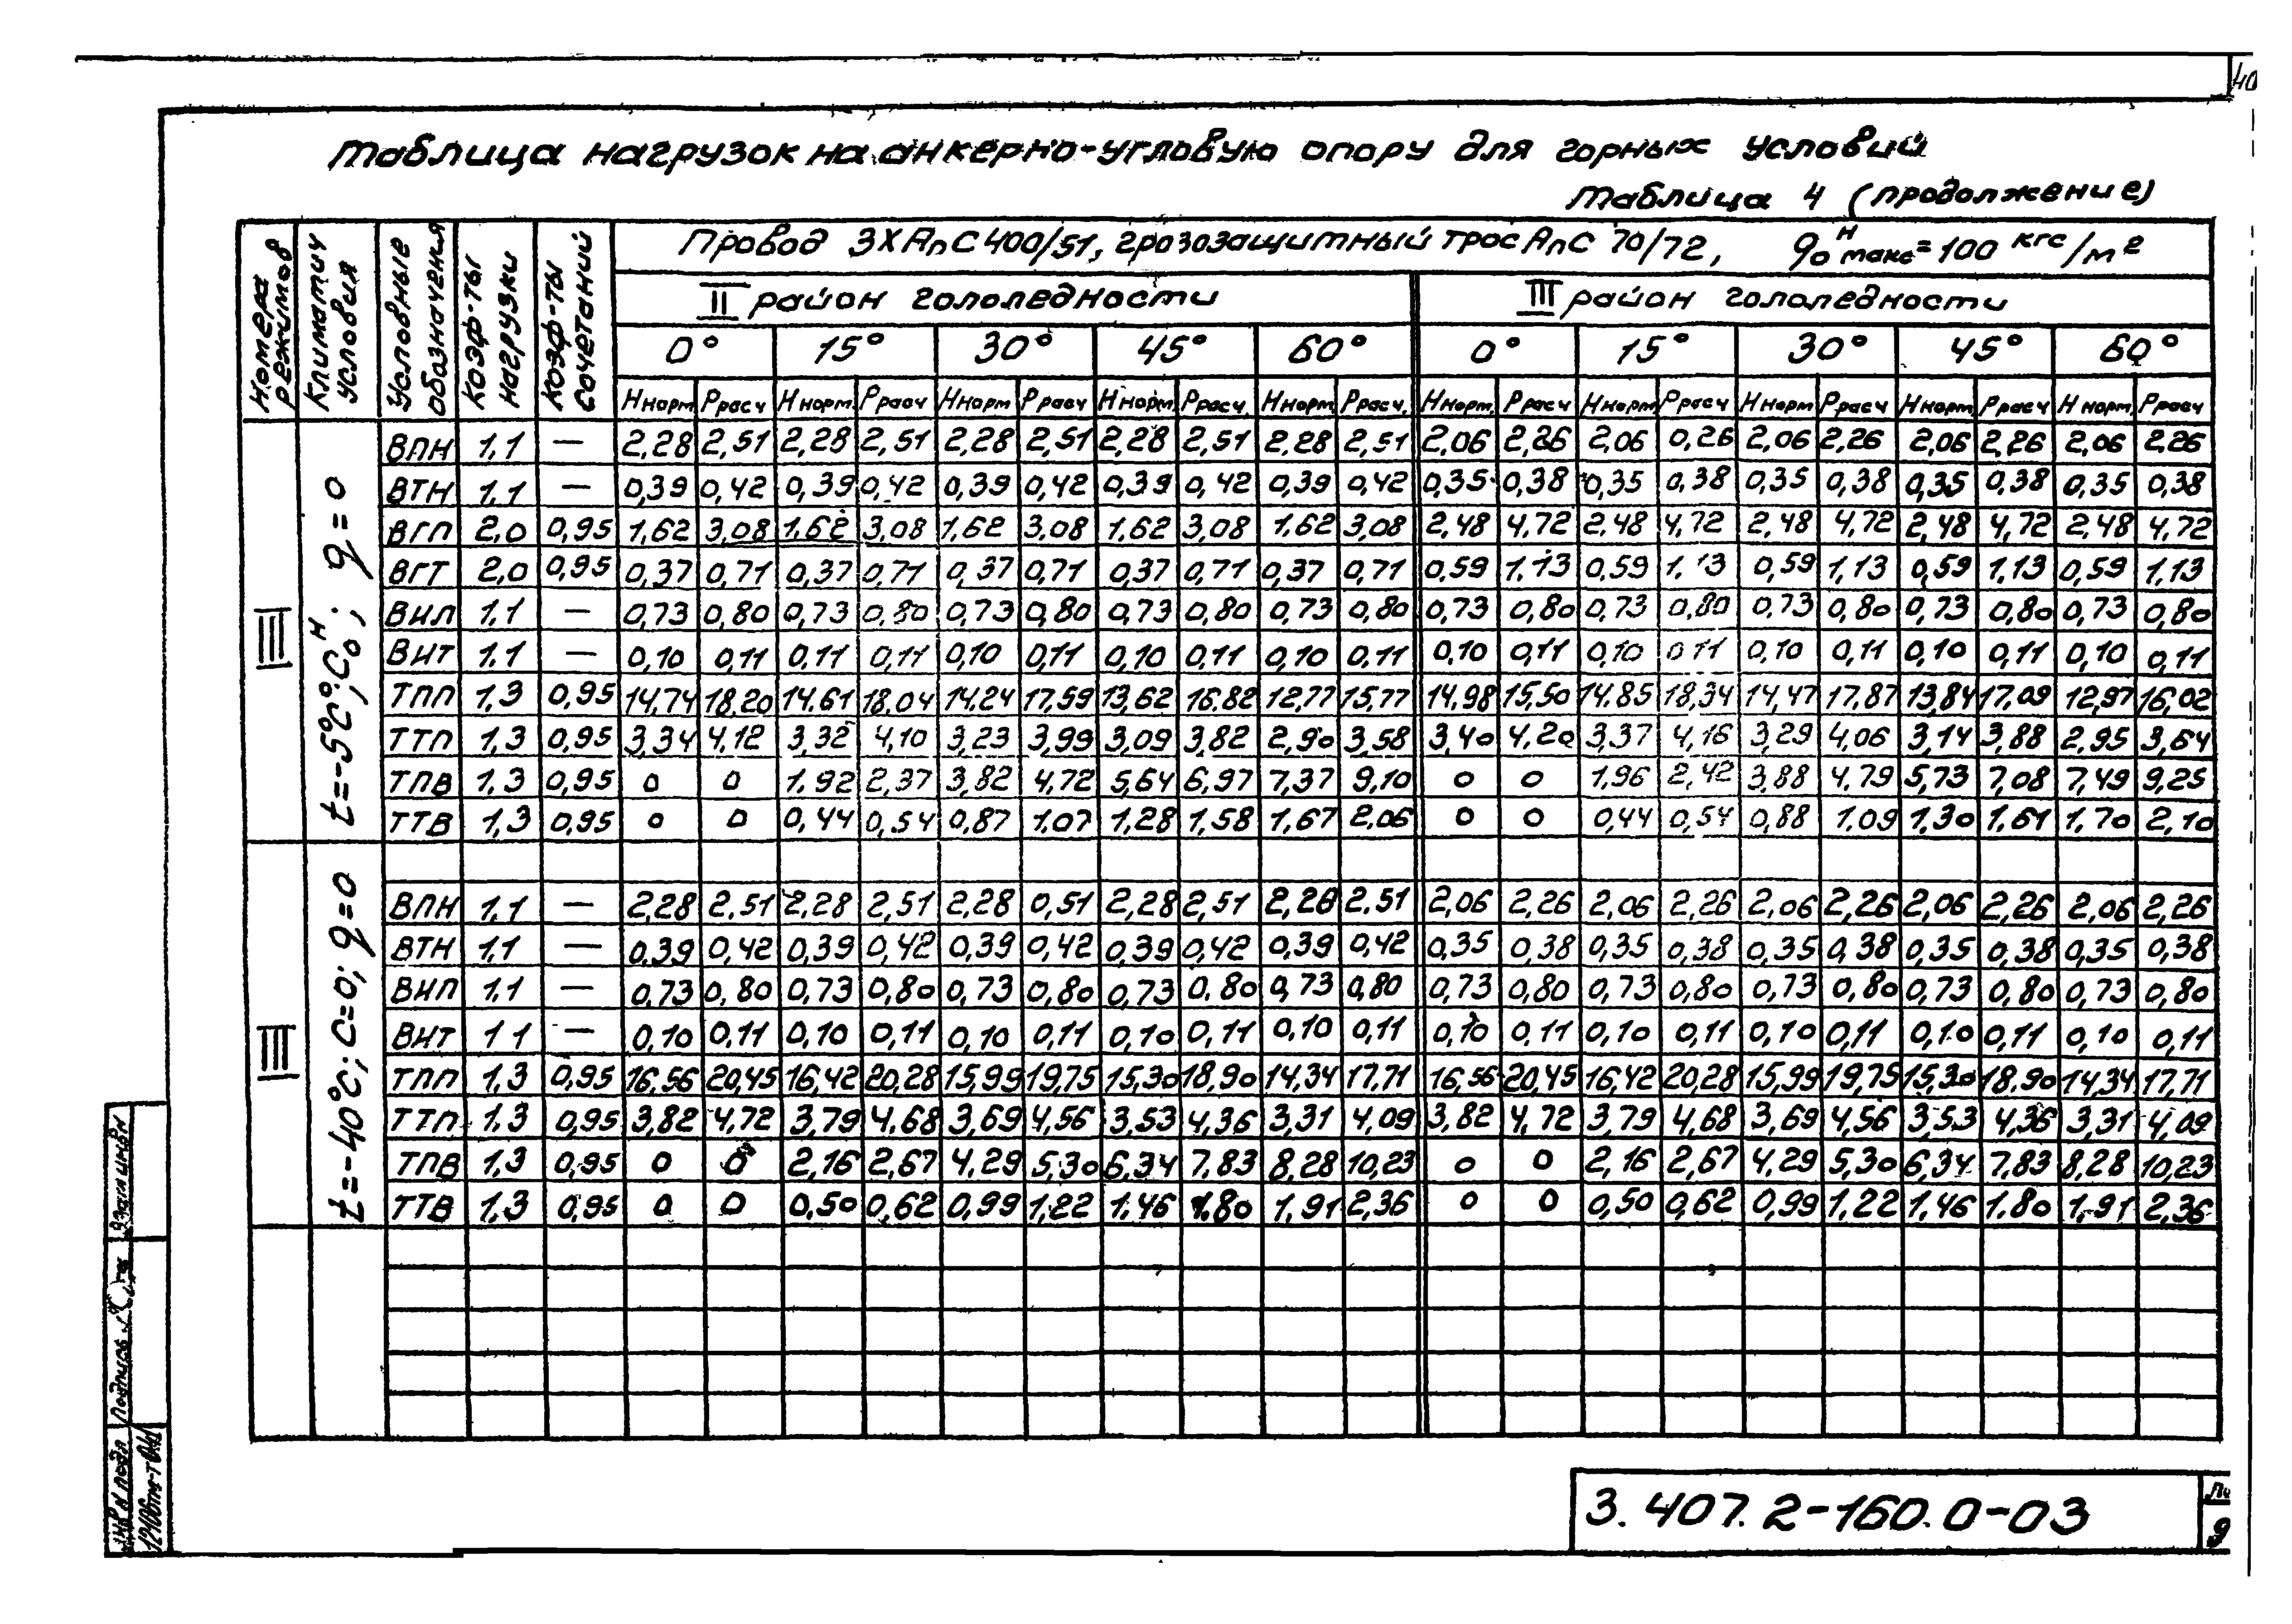 40
Таблица нагрузок на анкерно-угловую опору для горных условий
Таблица 4 (продолжение)
Номера режимов
Климатич условия
Условные обозначения
Коэф-ты нагрузки
Коэф-ты сочетаний
Провод 3ХАпС400/51, грозозащитный трос АпС 70/72, q₀ᴴмакс=100 кгс/м²
II район гололедности III район гололедности
0° 15° 30° 45° 60° 0° 15° 30° 45° 60°
Ннорм Ррасч Ннорм. Ррасч Ннорм Ррасч Ннорм. Ррасч. Ннорм Ррасч. Ннорм. Ррасч Ннорм Ррасч Ннорм Ррасч Ннорм Ррасч Ннорм. Ррасч
III
t=-5°C; C₀ᴴ; q=0
ВПН 1,1 — 2,28 2,51 2,28 2,51 2,28 2,51 2,28 2,51 2,28 2,51 2,06 2,26 2,06 0,26 2,06 2,26 2,06 2,26 2,06 2,26
ВТН 1,1 — 0,39 0,42 0,39 0,42 0,39 0,42 0,39 0,42 0,39 0,42 0,35 0,38 0,35 0,38 0,35 0,38 0,35 0,38 0,35 0,38
ВГП 2,0 0,95 1,62 3,08 1,62 3,08 1,62 3,08 1,62 3,08 1,62 3,08 2,48 4,72 2,48 4,72 2,48 4,72 2,48 4,72 2,48 4,72
ВГТ 2,0 0,95 0,37 0,71 0,37 0,71 0,37 0,71 0,37 0,71 0,37 0,71 0,59 1,13 0,59 1,13 0,59 1,13 0,59 1,13 0,59 1,13
ВИП 1,1 — 0,73 0,80 0,73 0,80 0,73 0,80 0,73 0,80 0,73 0,80 0,73 0,80 0,73 0,80 0,73 0,80 0,73 0,80 0,73 0,80
ВИТ 1,1 — 0,10 0,11 0,11 0,11 0,10 0,11 0,10 0,11 0,10 0,11 0,10 0,11 0,10 0,11 0,10 0,11 0,10 0,11 0,10 0,11
ТПП 1,3 0,95 14,74 18,20 14,61 18,04 14,24 17,59 13,62 16,82 12,77 15,77 14,98 15,50 14,85 18,34 14,47 17,87 13,84 17,09 12,97 16,02
ТТП 1,3 0,95 3,34 4,12 3,32 4,10 3,23 3,99 3,09 3,82 2,90 3,58 3,40 4,20 3,37 4,16 3,29 4,06 3,14 3,88 2,95 3,64
ТПВ 1,3 0,95 0 0 1,92 2,37 3,82 4,72 5,64 6,97 7,37 9,10 0 0 1,96 2,42 3,88 4,79 5,73 7,08 7,49 9,25
ТТВ 1,3 0,95 0 0 0,44 0,54 0,87 1,07 1,28 1,58 1,67 2,06 0 0 0,44 0,54 0,88 1,09 1,30 1,61 1,70 2,10
III
t=-40°C; C=0; q=0
ВПН 1,1 — 2,28 2,51 2,28 2,51 2,28 0,51 2,28 2,51 2,28 2,51 2,06 2,26 2,06 2,26 2,06 2,26 2,06 2,26 2,06 2,26
ВТН 1,1 — 0,39 0,42 0,39 0,42 0,39 0,42 0,39 0,42 0,39 0,42 0,35 0,38 0,35 0,38 0,35 0,38 0,35 0,38 0,35 0,38
ВИП 1,1 — 0,73 0,80 0,73 0,80 0,73 0,80 0,73 0,80 0,73 0,80 0,73 0,80 0,73 0,80 0,73 0,80 0,73 0,80 0,73 0,80
ВИТ 1 1 — 0,10 0,11 0,10 0,11 0,10 0,11 0,10 0,11 0,10 0,11 0,10 0,11 0,10 0,11 0,10 0,11 0,10 0,11 0,10 0,11
ТПП 1,3 0,95 16,56 20,45 16,42 20,28 15,99 19,75 15,30 18,90 14,34 17,71 16,56 20,45 16,42 20,28 15,99 19,75 15,30 18,90 14,34 17,71
ТТП 1,3 0,95 3,82 4,72 3,79 4,68 3,69 4,56 3,53 4,36 3,31 4,09 3,82 4,72 3,79 4,68 3,69 4,56 3,53 4,36 3,31 4,09
ТПВ 1,3 0,95 0 0 2,16 2,67 4,29 5,30 6,34 7,83 8,28 10,23 0 0 2,16 2,67 4,29 5,30 6,34 7,83 8,28 10,23
ТТВ 1,3 0,95 0 0 0,50 0,62 0,99 1,22 1,46 1,80 1,91 2,36 0 0 0,50 0,62 0,99 1,22 1,46 1,80 1,91 2,36
Взам инв N
Подпись
Инв N подл
3.407.2-160.0-03
9